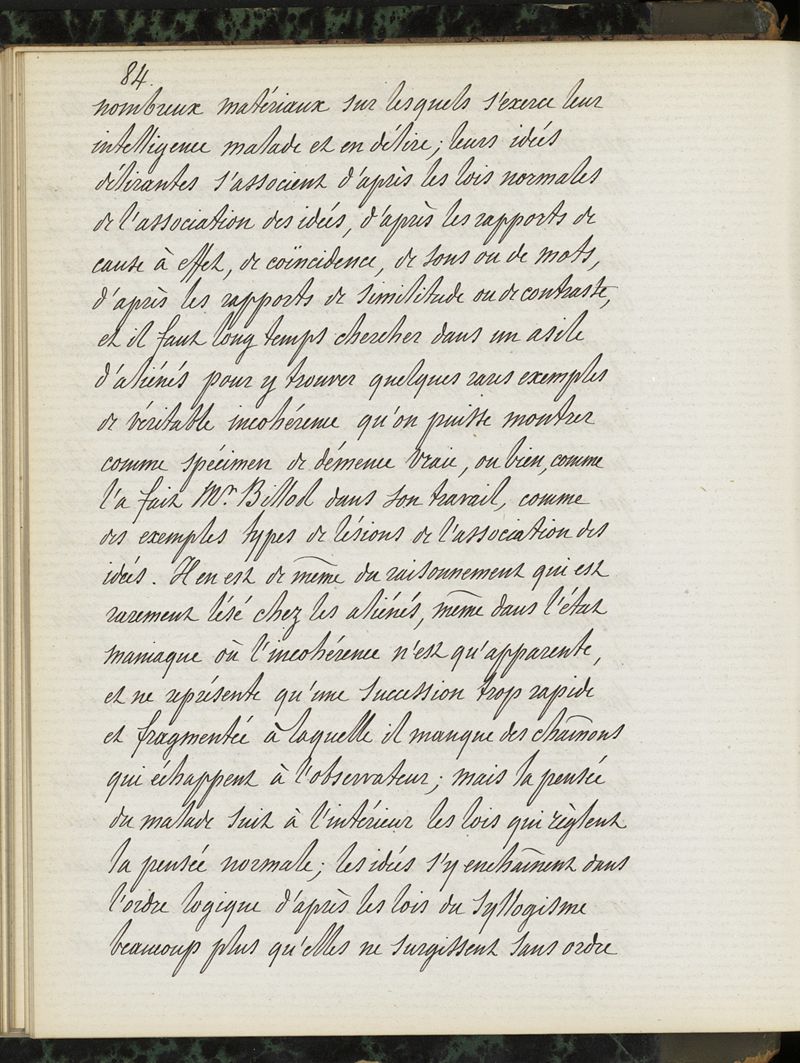 84.
nombreux matériaux sur lesquels s'exerce leur
intelligence malade et en délire; leurs idées
délirantes s'associent d'après les lois normales
de l'association des idées, d'après les rapports de
cause à effet, de coïncidence, de sons ou de mots,
d'après les rapports de similitude ou de contraste,
et il faut long temps chercher dans un asile
d'aliénés pour y trouver quelques rares exemples
de véritable incohérence qu'on puisse montrer
comme spécimen de démence vraie, ou bien, comme
l'a fait Mr. Billod dans son travail, comme
des exemples types de lésions de l'association des
idées. Il en est de même du raisonnement qui est
rarement lésé chez les aliénés, même dans l'état
maniaque où l'incohérence n'est qu'apparente,
et ne représente qu'une succession trop rapide
et fragmentée à laquelle il manque des chaînons
qui échappent à l'observateur; mais la pensée
du malade suit à l'intérieur les lois qui règlent
la pensée normale; les idées s'y enchaînent dans
l'ordre logique d'après les lois du syllogisme
beaucoup plus qu'elles ne surgissent sans ordre